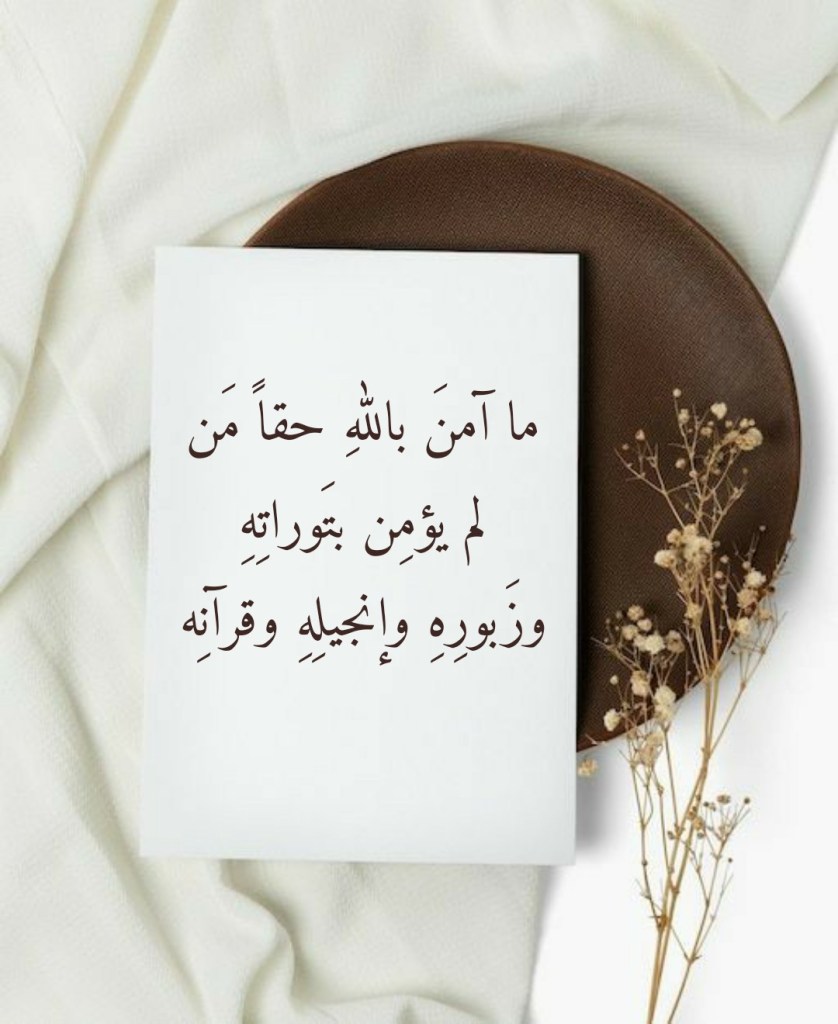 ما آمنَ باللهِ حقاً مَن
لم يؤمِن بتَوراتِهِ
وزَبورِهِ وإنجيلِهِ وقرآنِه